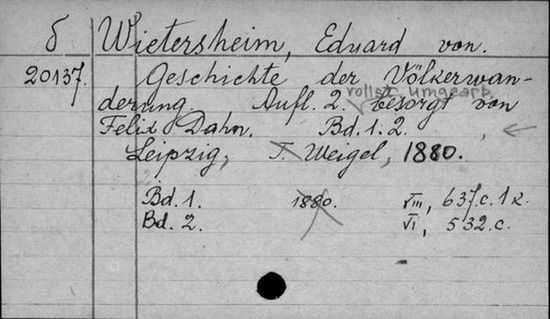 δ Wietersheim, Eduard von.
20137. Geschichte der Völkerwan-
vollst. umgearb.
derung. Aufl. 2. besorgt von
Felix Dahn. Bd. 1. 2.
Leipzig, T. Weigel, 1880.
Bd. 1. 1880. VIII, 637 c. 1 k.
Bd. 2. VI, 532 c.